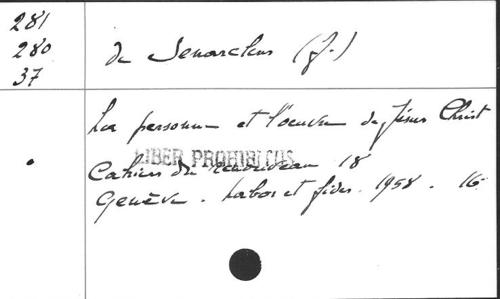 281
280
37
de Senarclens (J.)
La personne et l'oeuvre de Jésus Christ
LIBER PROHIBITUS
Cahiers du renouveau 18
Genève. Labor et fides. 1958. 16